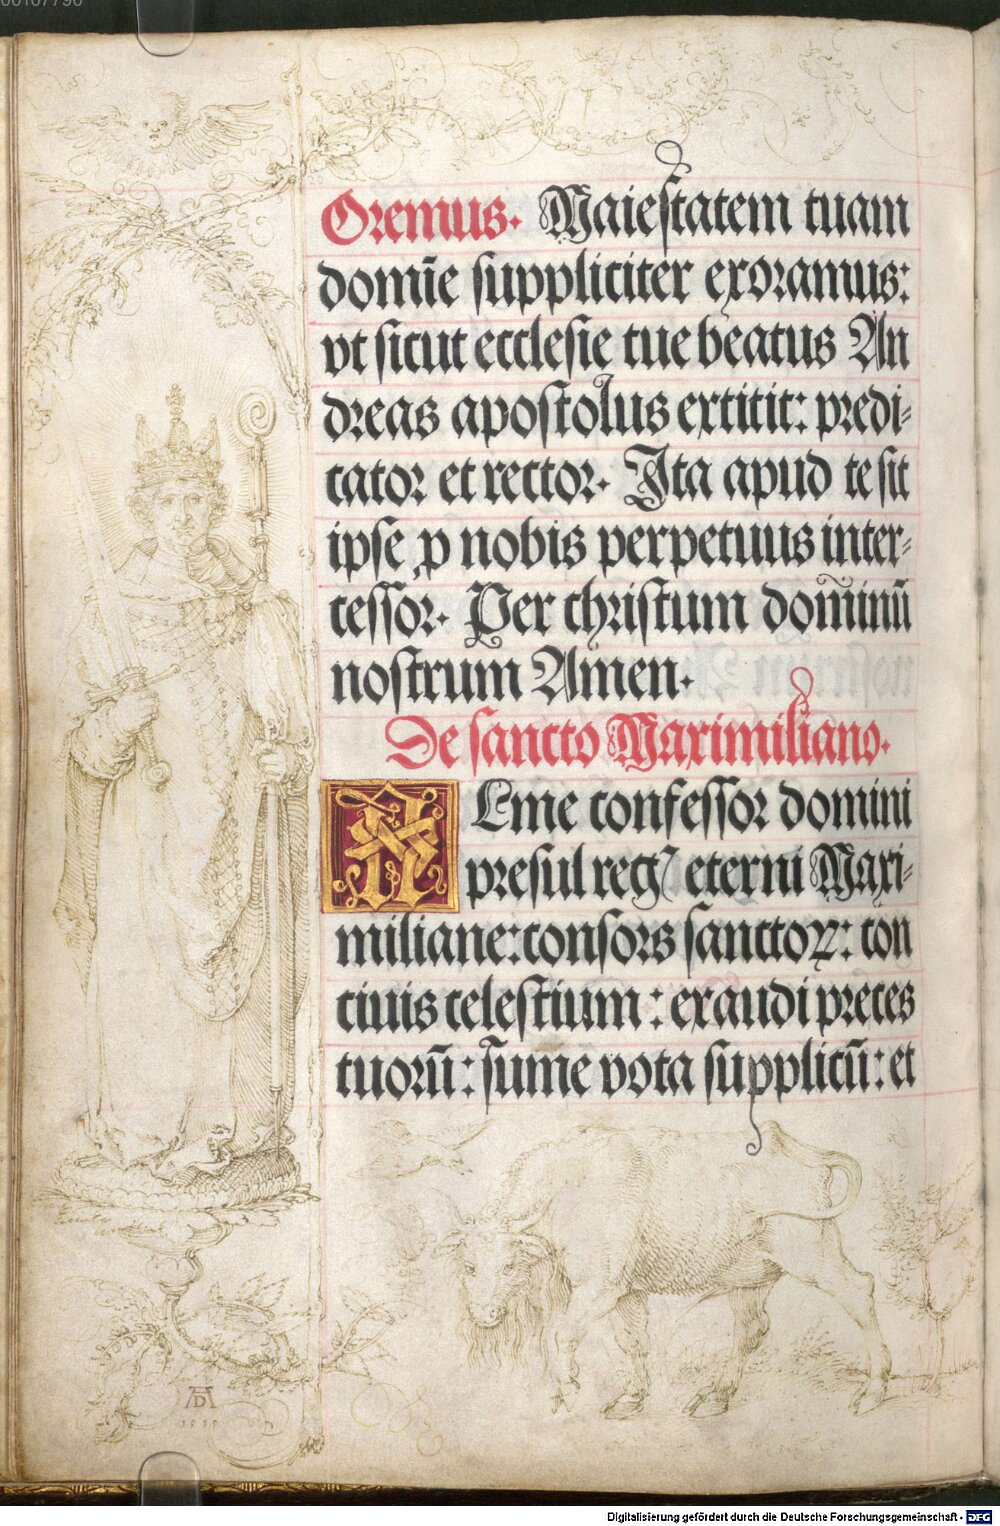 Oremus. Maiestatem tuam
domīe suppliciter exoramus:
vt sicut ecclesie tue beatus An
dreas apostolus extitit: predi-
cator et rector. Ita apud te sit
ipse ꝓ nobis perpetuus inter-
cessor. Per christum dominū
nostrum Amen.
De sancto Maximiliano.
ALme confessor domini
presul reg⁊ eterni Maxi-
miliane: consors sanctoꝝ: con
ciuis celestium: exaudi preces
tuorū: sume vota supplicū: et
AD
Digitalisierung gefördert durch die Deutsche Forschungsgemeinschaft - DFG